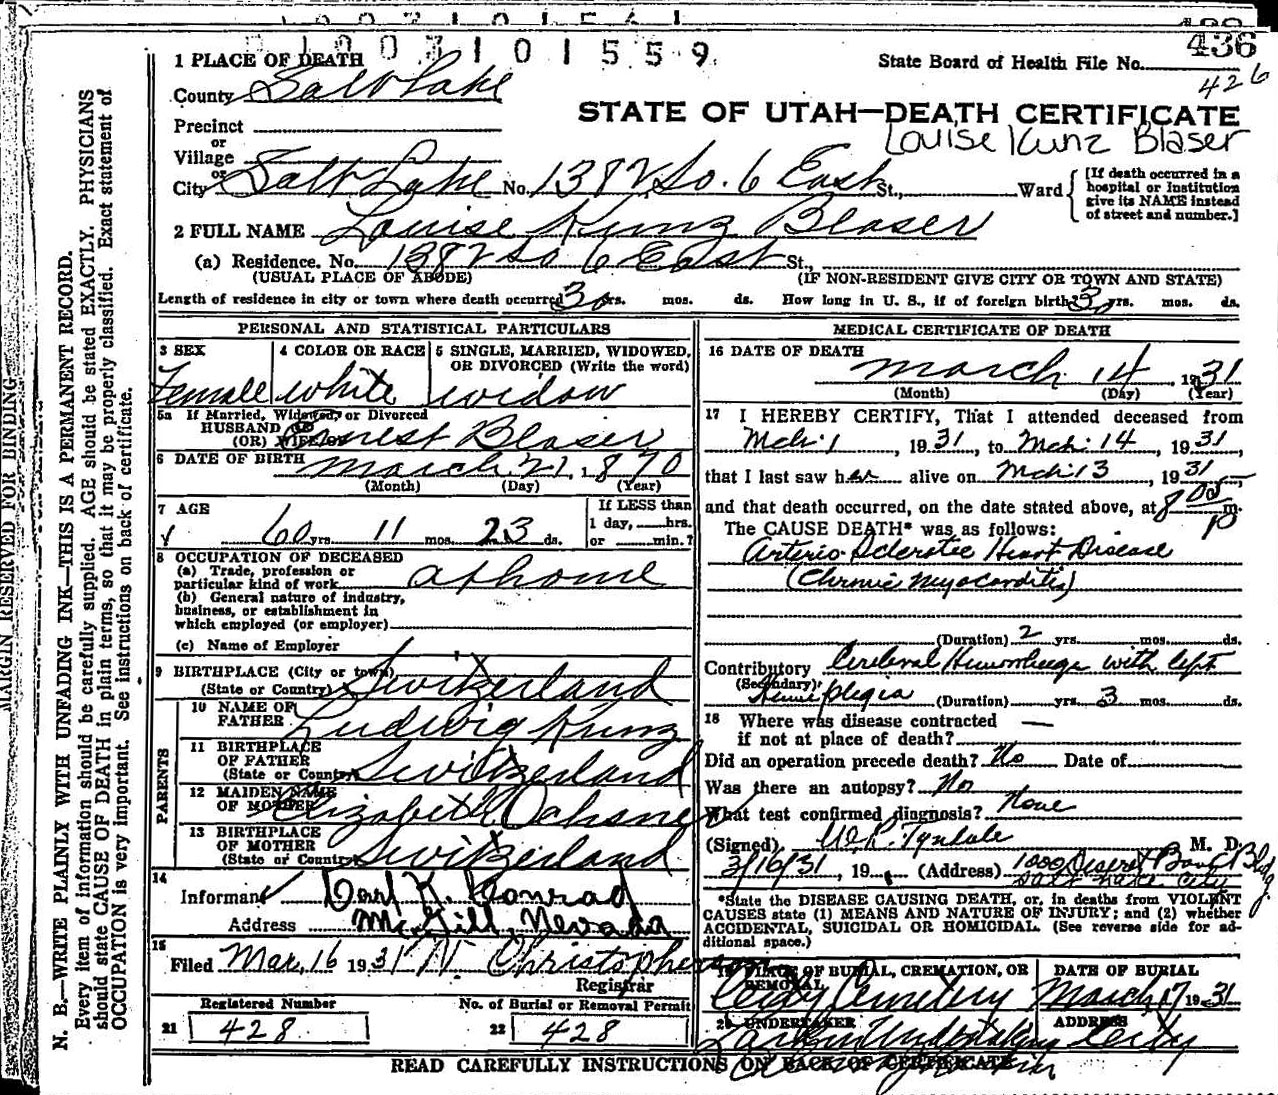 1003101559
436
State Board of Health File No.
426
1 PLACE OF DEATH
County Salt Lake
STATE OF UTAH—DEATH CERTIFICATE
Louise Kunz Blaser
Precinct
or
Village
or
City Salt Lake No. 1382 So. 6 East St., Ward
[If death occurred in a
hospital or institution
give its NAME instead
of street and number.]
2 FULL NAME Louise Kunz Blaser
(a) Residence. No. 1382 So 6 East St.,
(USUAL PLACE OF ABODE) (IF NON-RESIDENT GIVE CITY OR TOWN AND STATE)
Length of residence in city or town where death occurred 30 yrs. mos. ds. How long in U. S., if of foreign birth? 30 yrs. mos. ds.
PERSONAL AND STATISTICAL PARTICULARS
3 SEX
Female
4 COLOR OR RACE
white
5 SINGLE, MARRIED, WIDOWED,
OR DIVORCED (Write the word)
widow
5a If Married, Widowed, or Divorced
HUSBAND OF
(OR) WIFE OF Ernest Blaser
6 DATE OF BIRTH March 21, 1870
(Month) (Day) (Year)
7 AGE
60 yrs 11 mos. 23 ds.
If LESS than
1 day, hrs.
or min.?
8 OCCUPATION OF DECEASED
(a) Trade, profession or
particular kind of work at home
(b) General nature of industry,
business, or establishment in
which employed (or employer)
(c) Name of Employer
9 BIRTHPLACE (City or town)
(State or Country) Switzerland
PARENTS
10 NAME OF
FATHER Ludwig Kunz
11 BIRTHPLACE
OF FATHER
(State or Country) Switzerland
12 MAIDEN NAME
OF MOTHER Elizabeth Ochsner
13 BIRTHPLACE
OF MOTHER
(State or Country) Switzerland
14
Informant Carl K. Conrad
Address McGill, Nevada
15
Filed Mar. 16 1931 N. Christopherson
Registrar
Registered Number
21 428
No. of Burial or Removal Permit
22 428
MEDICAL CERTIFICATE OF DEATH
16 DATE OF DEATH
March 14, 1931
(Month) (Day) (Year)
17 I HEREBY CERTIFY, That I attended deceased from
Mch. 1, 1931, to Mch. 14, 1931,
that I last saw her alive on Mch. 13, 1931,
and that death occurred, on the date stated above, at 8 00 p m.
The CAUSE DEATH* was as follows:
Arterio Sclerotic Heart Disease
(Chronic Myocarditis)
(Duration) 2 yrs. mos. ds.
Contributory Cerebral Hemorrhage with left
(Secondary) Hemiplegia
(Duration) yrs. 3 mos. ds.
18 Where was disease contracted
if not at place of death? —
Did an operation precede death? No Date of
Was there an autopsy? No
What test confirmed diagnosis? None
(Signed) Tyndale M. D.
3/16/31, 19 , (Address) 1000 Deseret Bank Bldg.
Salt Lake City
*State the DISEASE CAUSING DEATH, or, in deaths from VIOLENT
CAUSES state (1) MEANS AND NATURE OF INJURY; and (2) whether
ACCIDENTAL, SUICIDAL OR HOMICIDAL. (See reverse side for ad-
ditional space.)
19 PLACE OF BURIAL, CREMATION, OR
REMOVAL
City Cemetery
DATE OF BURIAL
March 17 1931
20 UNDERTAKER
Larkin Undertaking
ADDRESS
City
READ CAREFULLY INSTRUCTIONS ON BACK OF CERTIFICATE
MARGIN RESERVED FOR BINDING
N. B.—WRITE PLAINLY WITH UNFADING INK—THIS IS A PERMANENT RECORD.
Every item of information should be carefully supplied. AGE should be stated EXACTLY. PHYSICIANS
should state CAUSE OF DEATH in plain terms, so that it may be properly classified. Exact statement of
OCCUPATION is very important. See instructions on back of certificate.